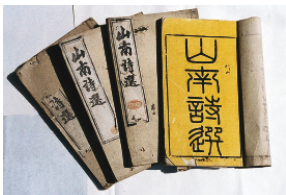 詩選
山南詩選
山南詩選
山南詩選